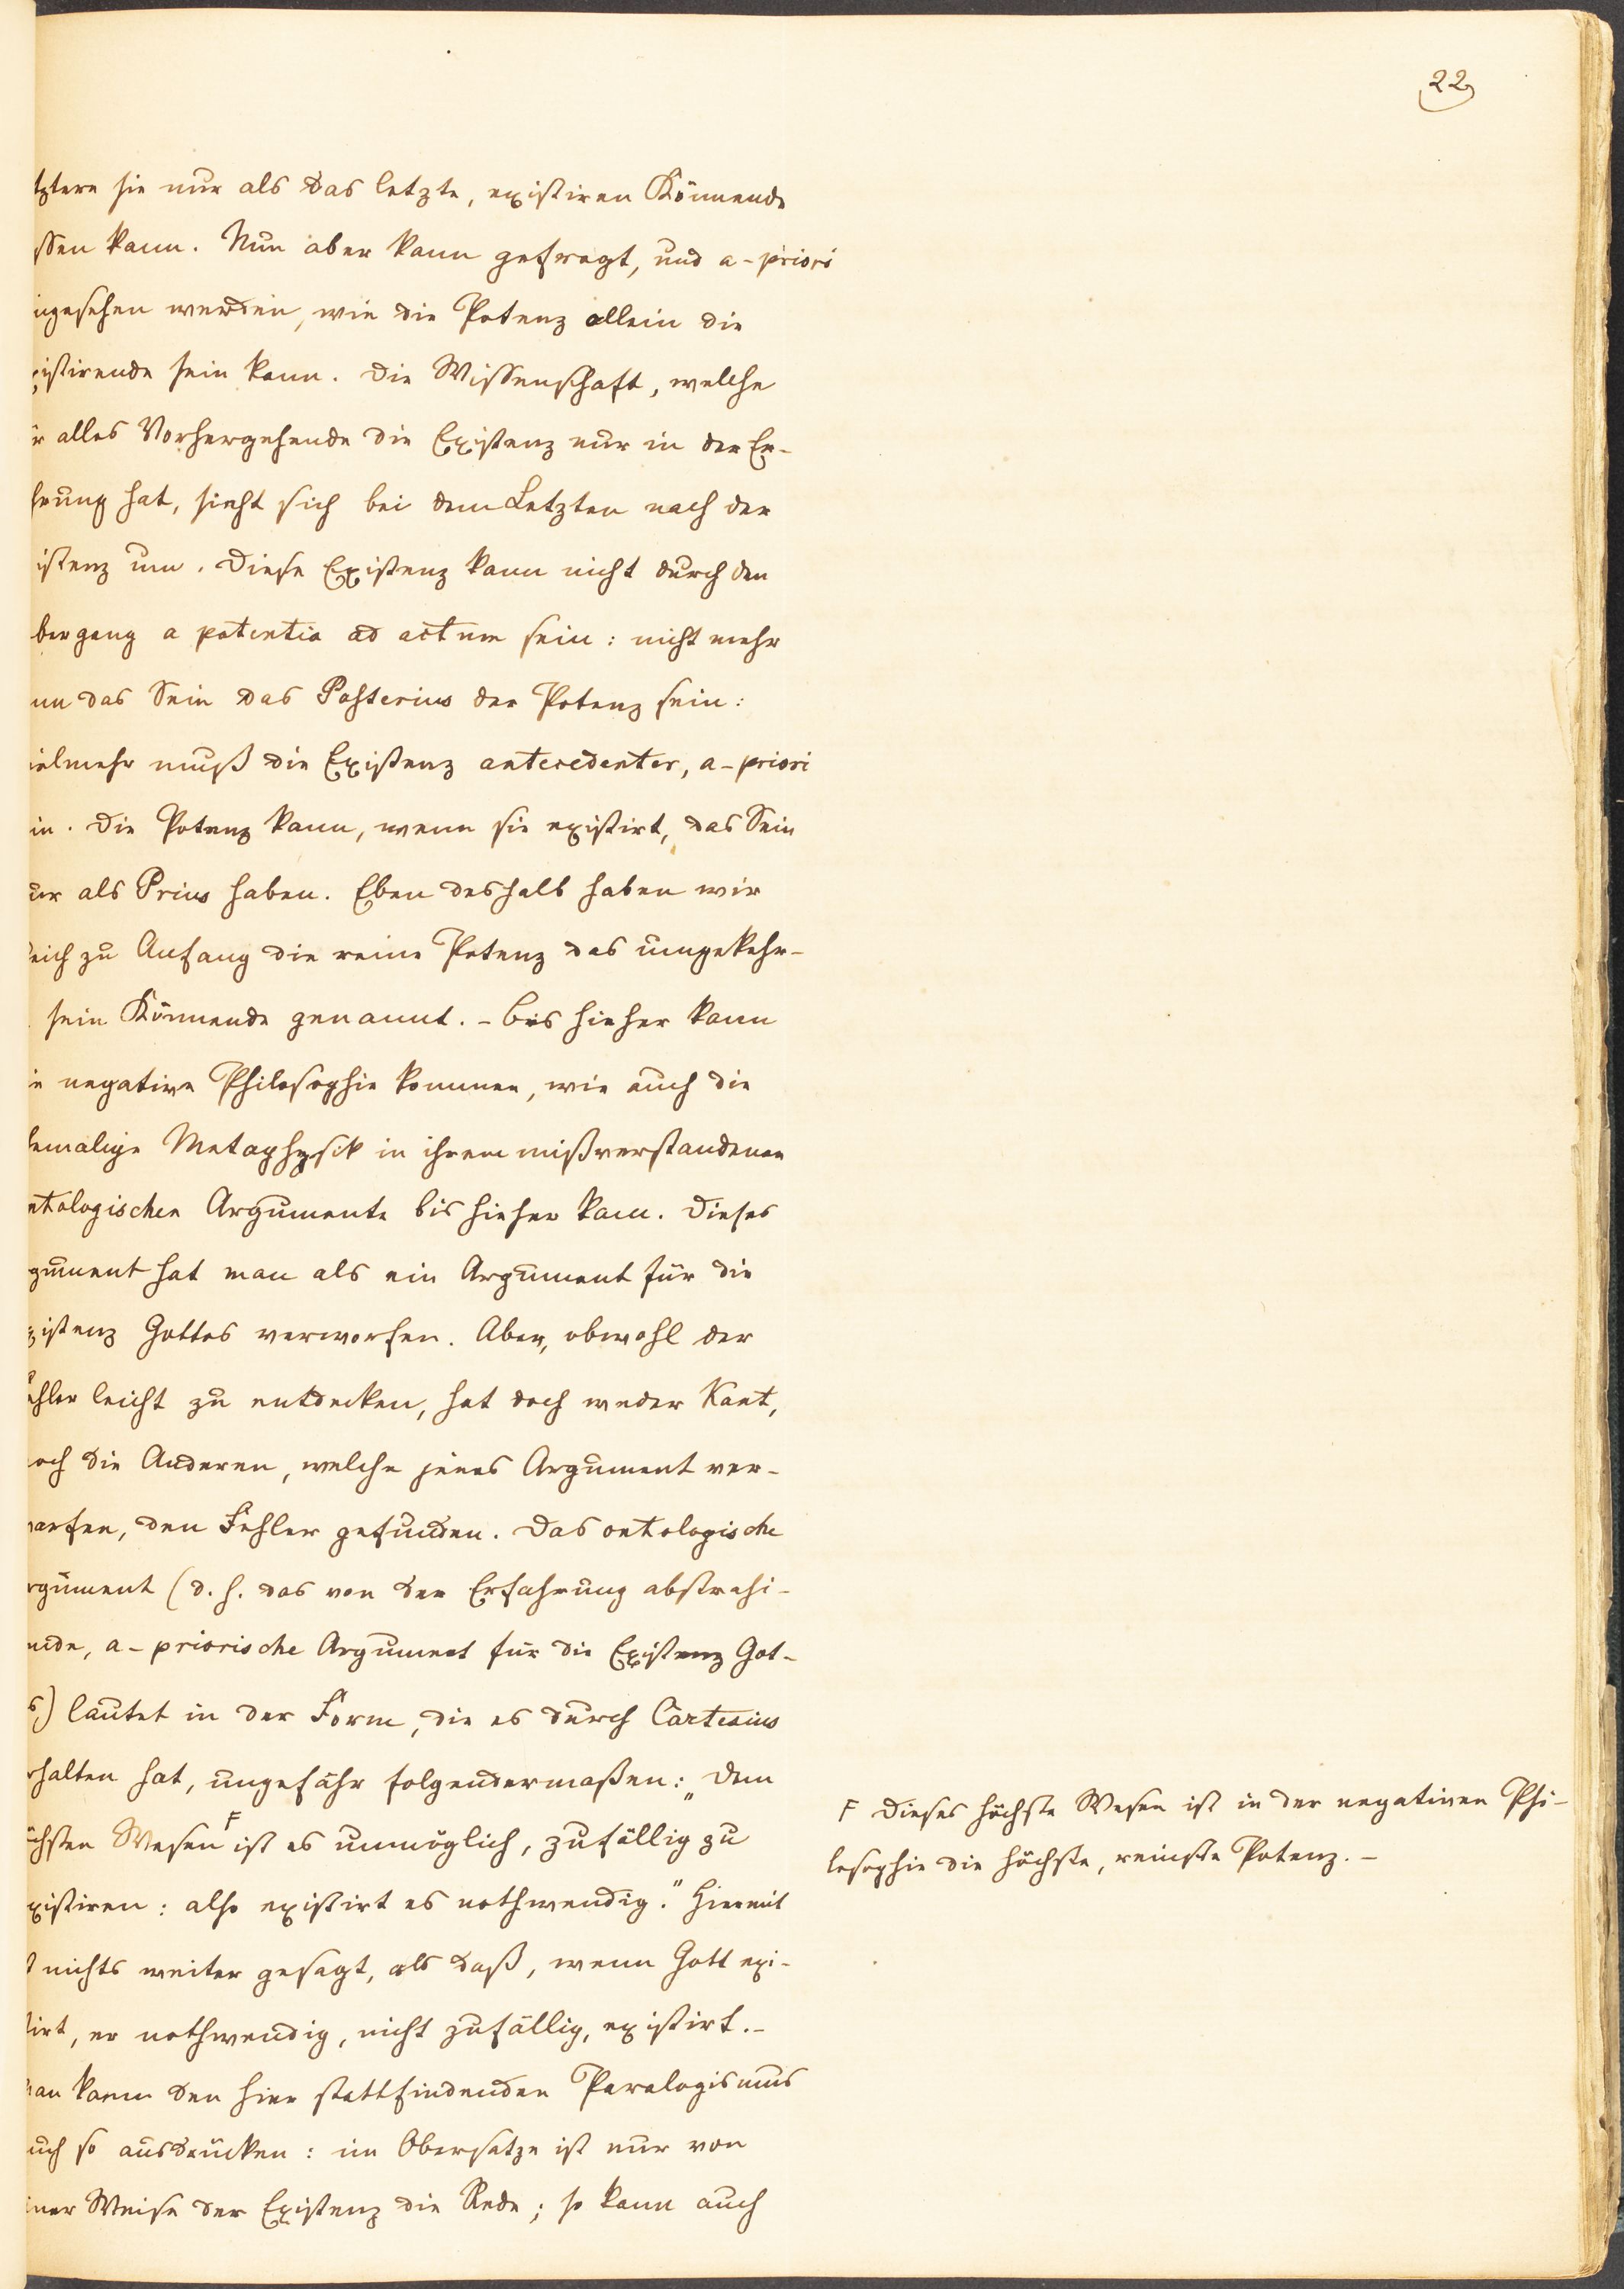 22
tztere sie nur als das letzte, existiren Könnende
ssen kann. Nun aber kann gefragt, und a-priori
ngesehen werden, wie die Potenz allein die
xistirende sein kann. Die Wissenschaft, welche
r alles Vorhergehende die Existenz nur in der Er-
hrung hat, sieht sich bei dem Letzten nach der
istenz um. Diese Existenz kann nicht durch den
bergang a potentia ad actum sein: nicht mehr
nn das Sein das Posterius der Potenz sein:
ielmehr muß die Existenz antecedenter, a-priori
in. Die Potenz kann, wenn sie existirt, das Sein
ur als Prius haben. Eben deshalb haben wir
leich zu Anfang die reine Potenz das umgekehr-
sein Könnende genannt. – Bis hieher kann
ie negative Philosophie kommen, wie auch die
hemalige Metaphysik in ihrem mißverstandenen
ntologischen Argumente bis hieher kam. Dieses
gument hat man als ein Argument für die
xistenz Gottes verworfen. Aber, obwohl der
ehler leicht zu entdecken, hat doch weder Kant,
och die Anderen, welche jenes Argument ver-
warfen, den Fehler gefunden. Das ontologische
rgument (d. h. das von der Erfahrung abstrahi-
nde, a-priorische Argument für die Existenz Got-
s) lautet in der Form, die es durch Cartesius
rhalten hat, ungefähr folgendermaßen: „Dem
chsten Wesen F ist es unmöglich, zufällig zu
xistiren: also existirt es nothwendig." Hiermit
t nichts weiter gesagt, als daß, wenn Gott exi-
tirt, er nothwendig, nicht zufällig, existirt. –
an kann den hier stattfindenden Paralogismus
uch so ausdrücken: im Obersatze ist nur von
iner Weise der Existenz die Rede; so kann auch
F Dieses höchste Wesen ist in der negativen Phi-
losophie die höchste, reinste Potenz. –